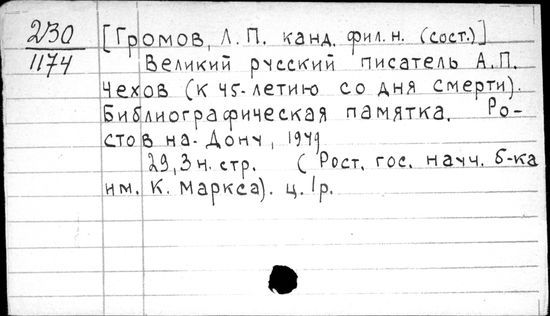 230
1174
[Громов, Л. П. канд. фил. н. (сост.)]
Великий русский писатель А. П.
Чехов (к 45-летию со дня смерти).
Библиографическая памятка. Ро-
стов на-Дону, 1949
29, 3 н. стр. (Рост. гос. науч. б-ка
им. К. Маркса). ц. 1р.